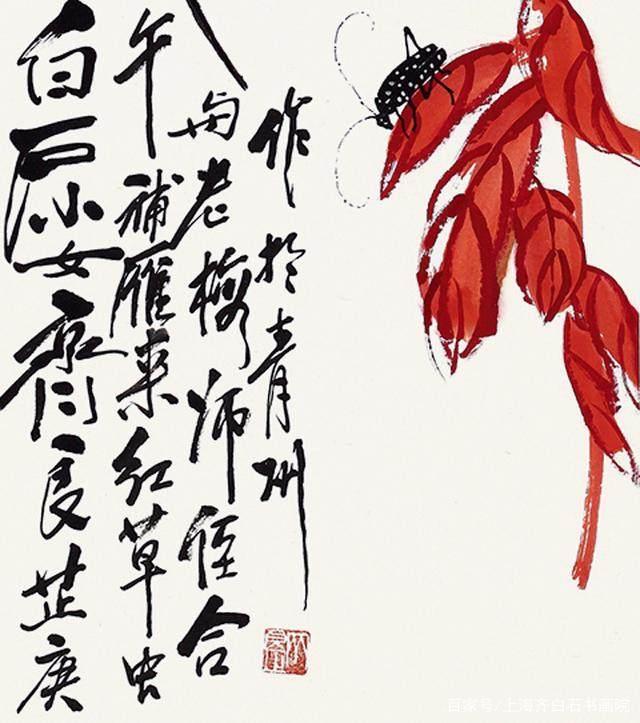 白石小女齐良芷庚
午補雁来红草虫
与老梅师侄合
作於青州
百家号/上海齐白石书画院